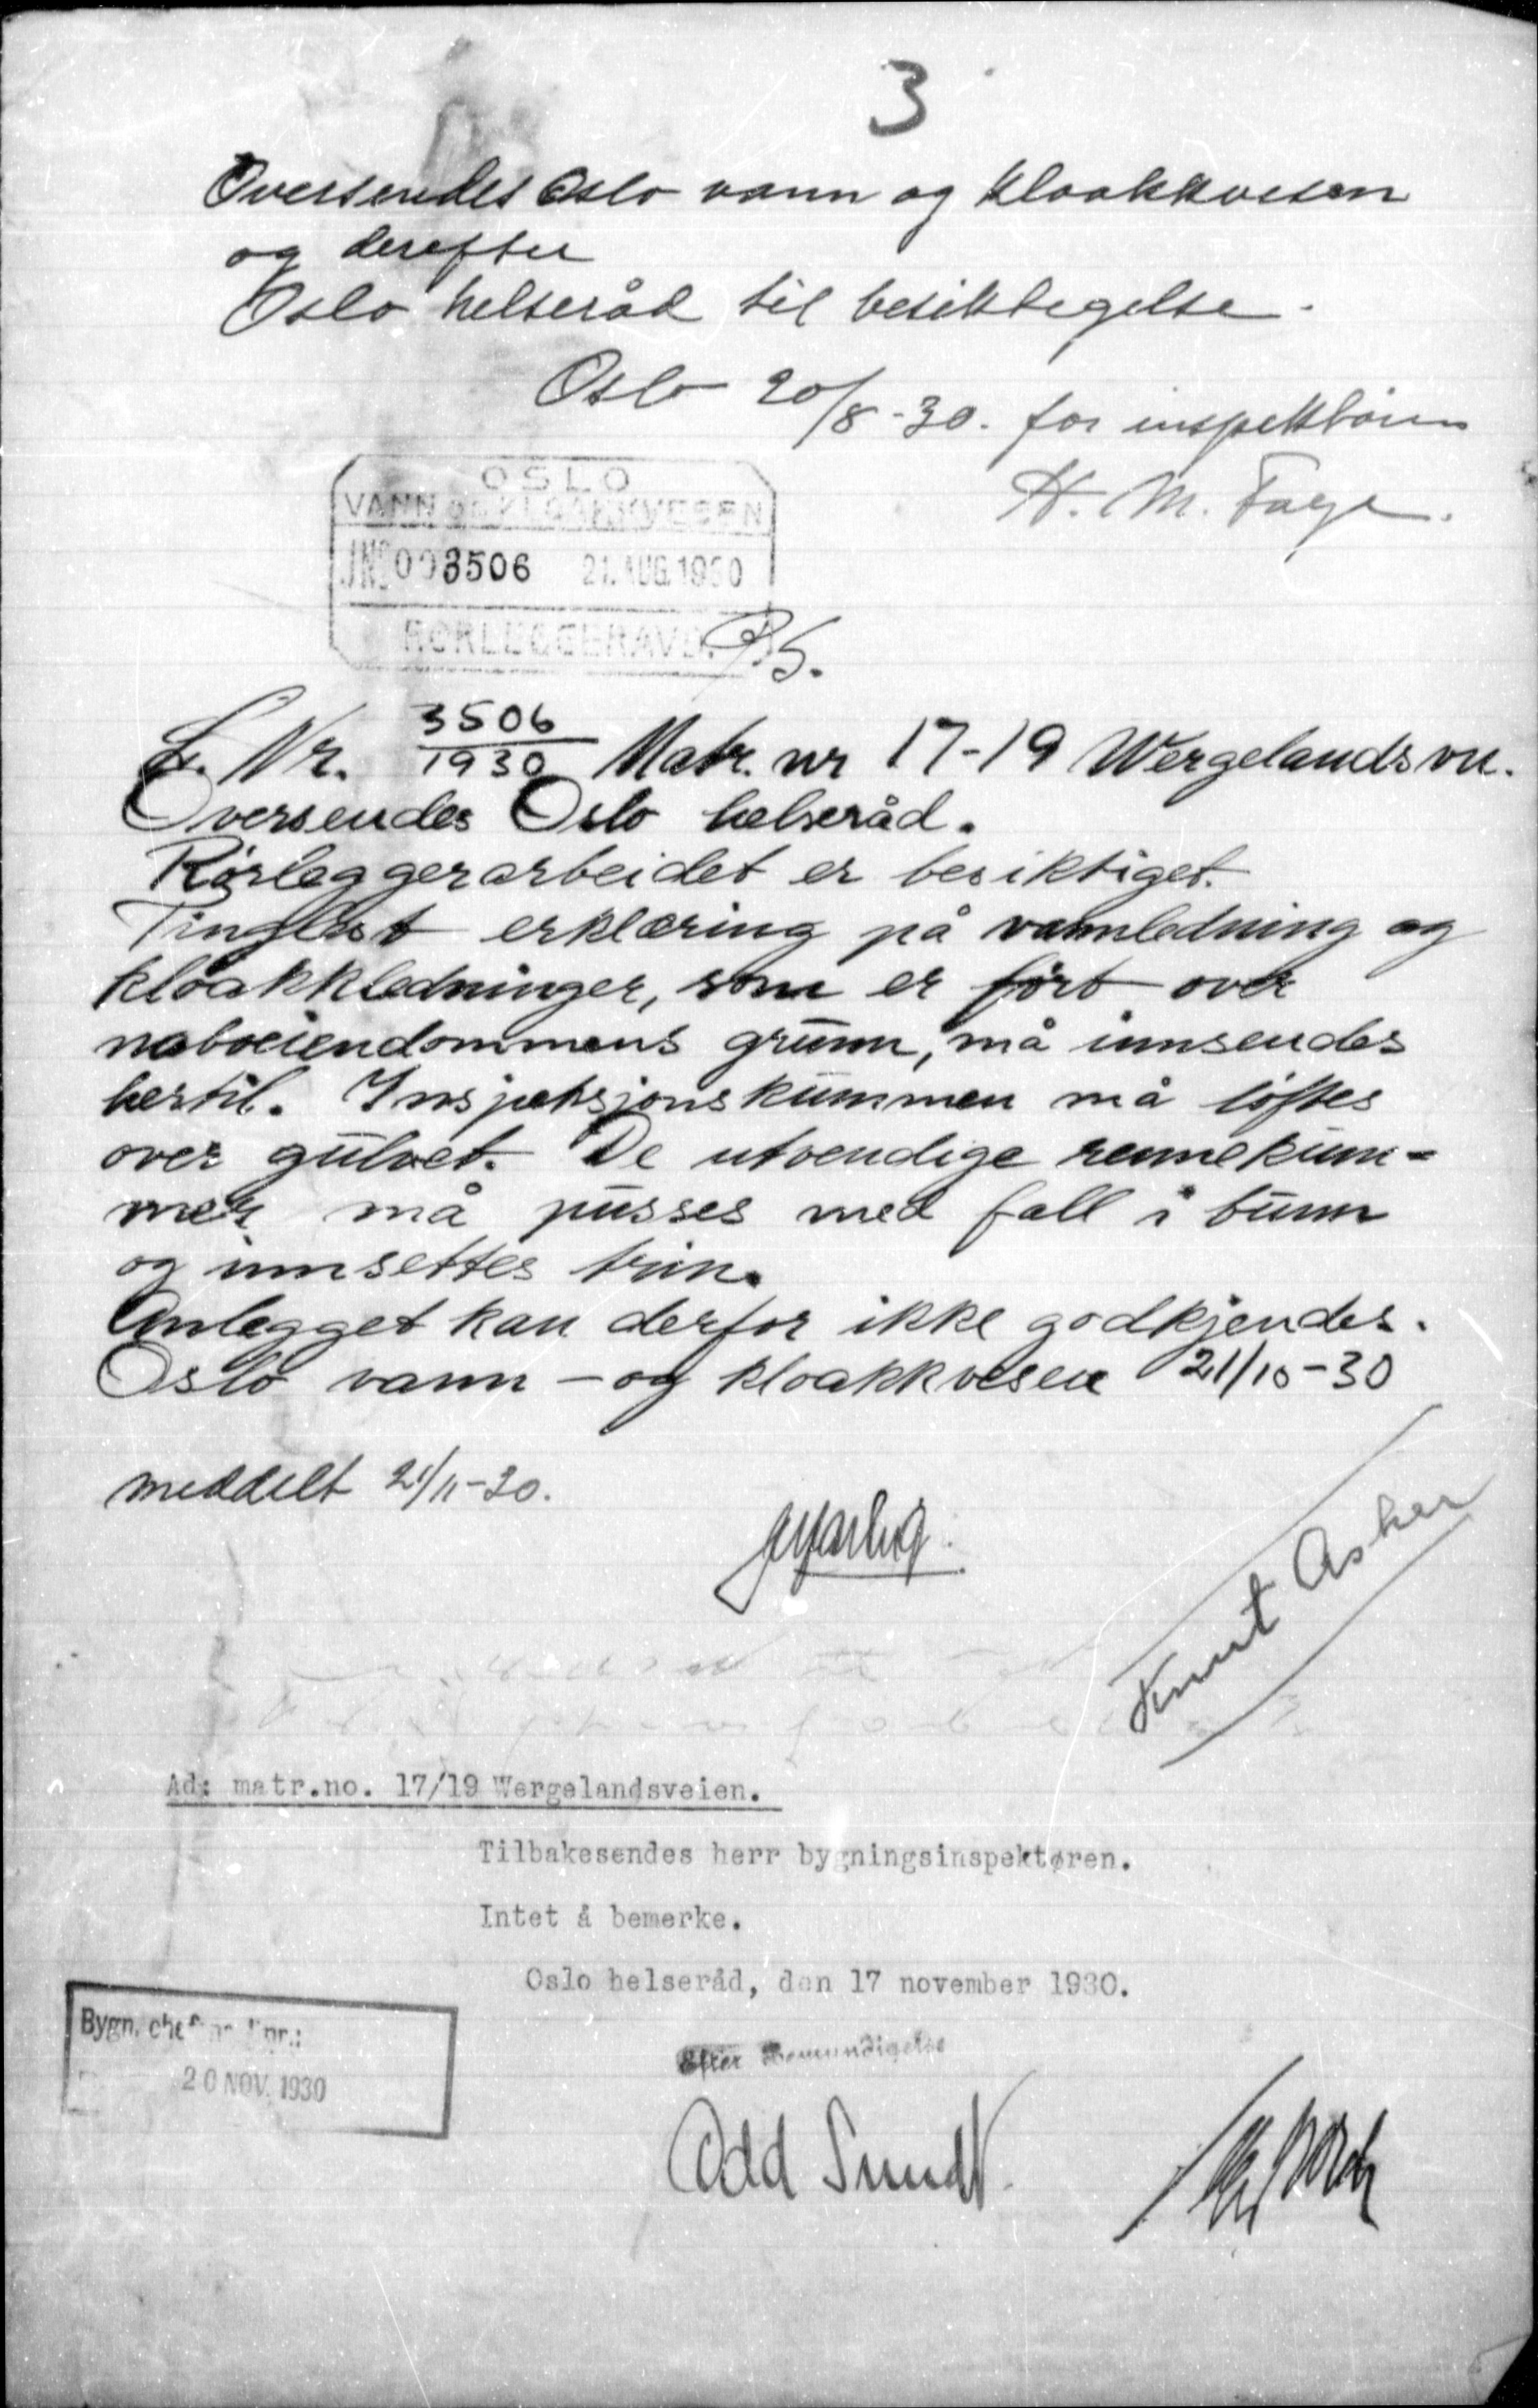 3
Oversendes Oslo vann og kloakkvesen
og derefter
Oslo helseråd til besiktigelse.
Oslo 20/8-30. for inspektøren
H. M. Faye.
OSLO
VANN OG KLOAKKVESEN
JNO 003506 21. AUG. 1930
RØRLEGGERAVD.
L. Nr. 3506/1930 Matr. nr 17-19 Wergelandsvn.
Oversendes Oslo helseråd.
Rørleggerarbeidet er besiktiget.
Tinglest erklæring på vannledning og
kloakkledninger, som er ført over
naboeiendommens grunn, må innsendes
hertil. Inspeksjonskummen må løftes
over gulvet. De utvendige rennekum-
mer må pusses med fall i bunn
og innsettes trin.
Anlegget kan derfor ikke godkjendes.
Oslo vann - og kloakkvesen 21/10-30
meddelt 21/11-30.
Knut Asker
Ad: matr.no. 17/19 Wergelandsveien.
Tilbakesendes herr bygningsinspektøren.
Intet å bemerke.
Oslo helseråd, den 17 november 1930.
Bygn. chefens jnr.:
20 NOV. 1930
Efter Bemyndigelse
Odd Sundt.